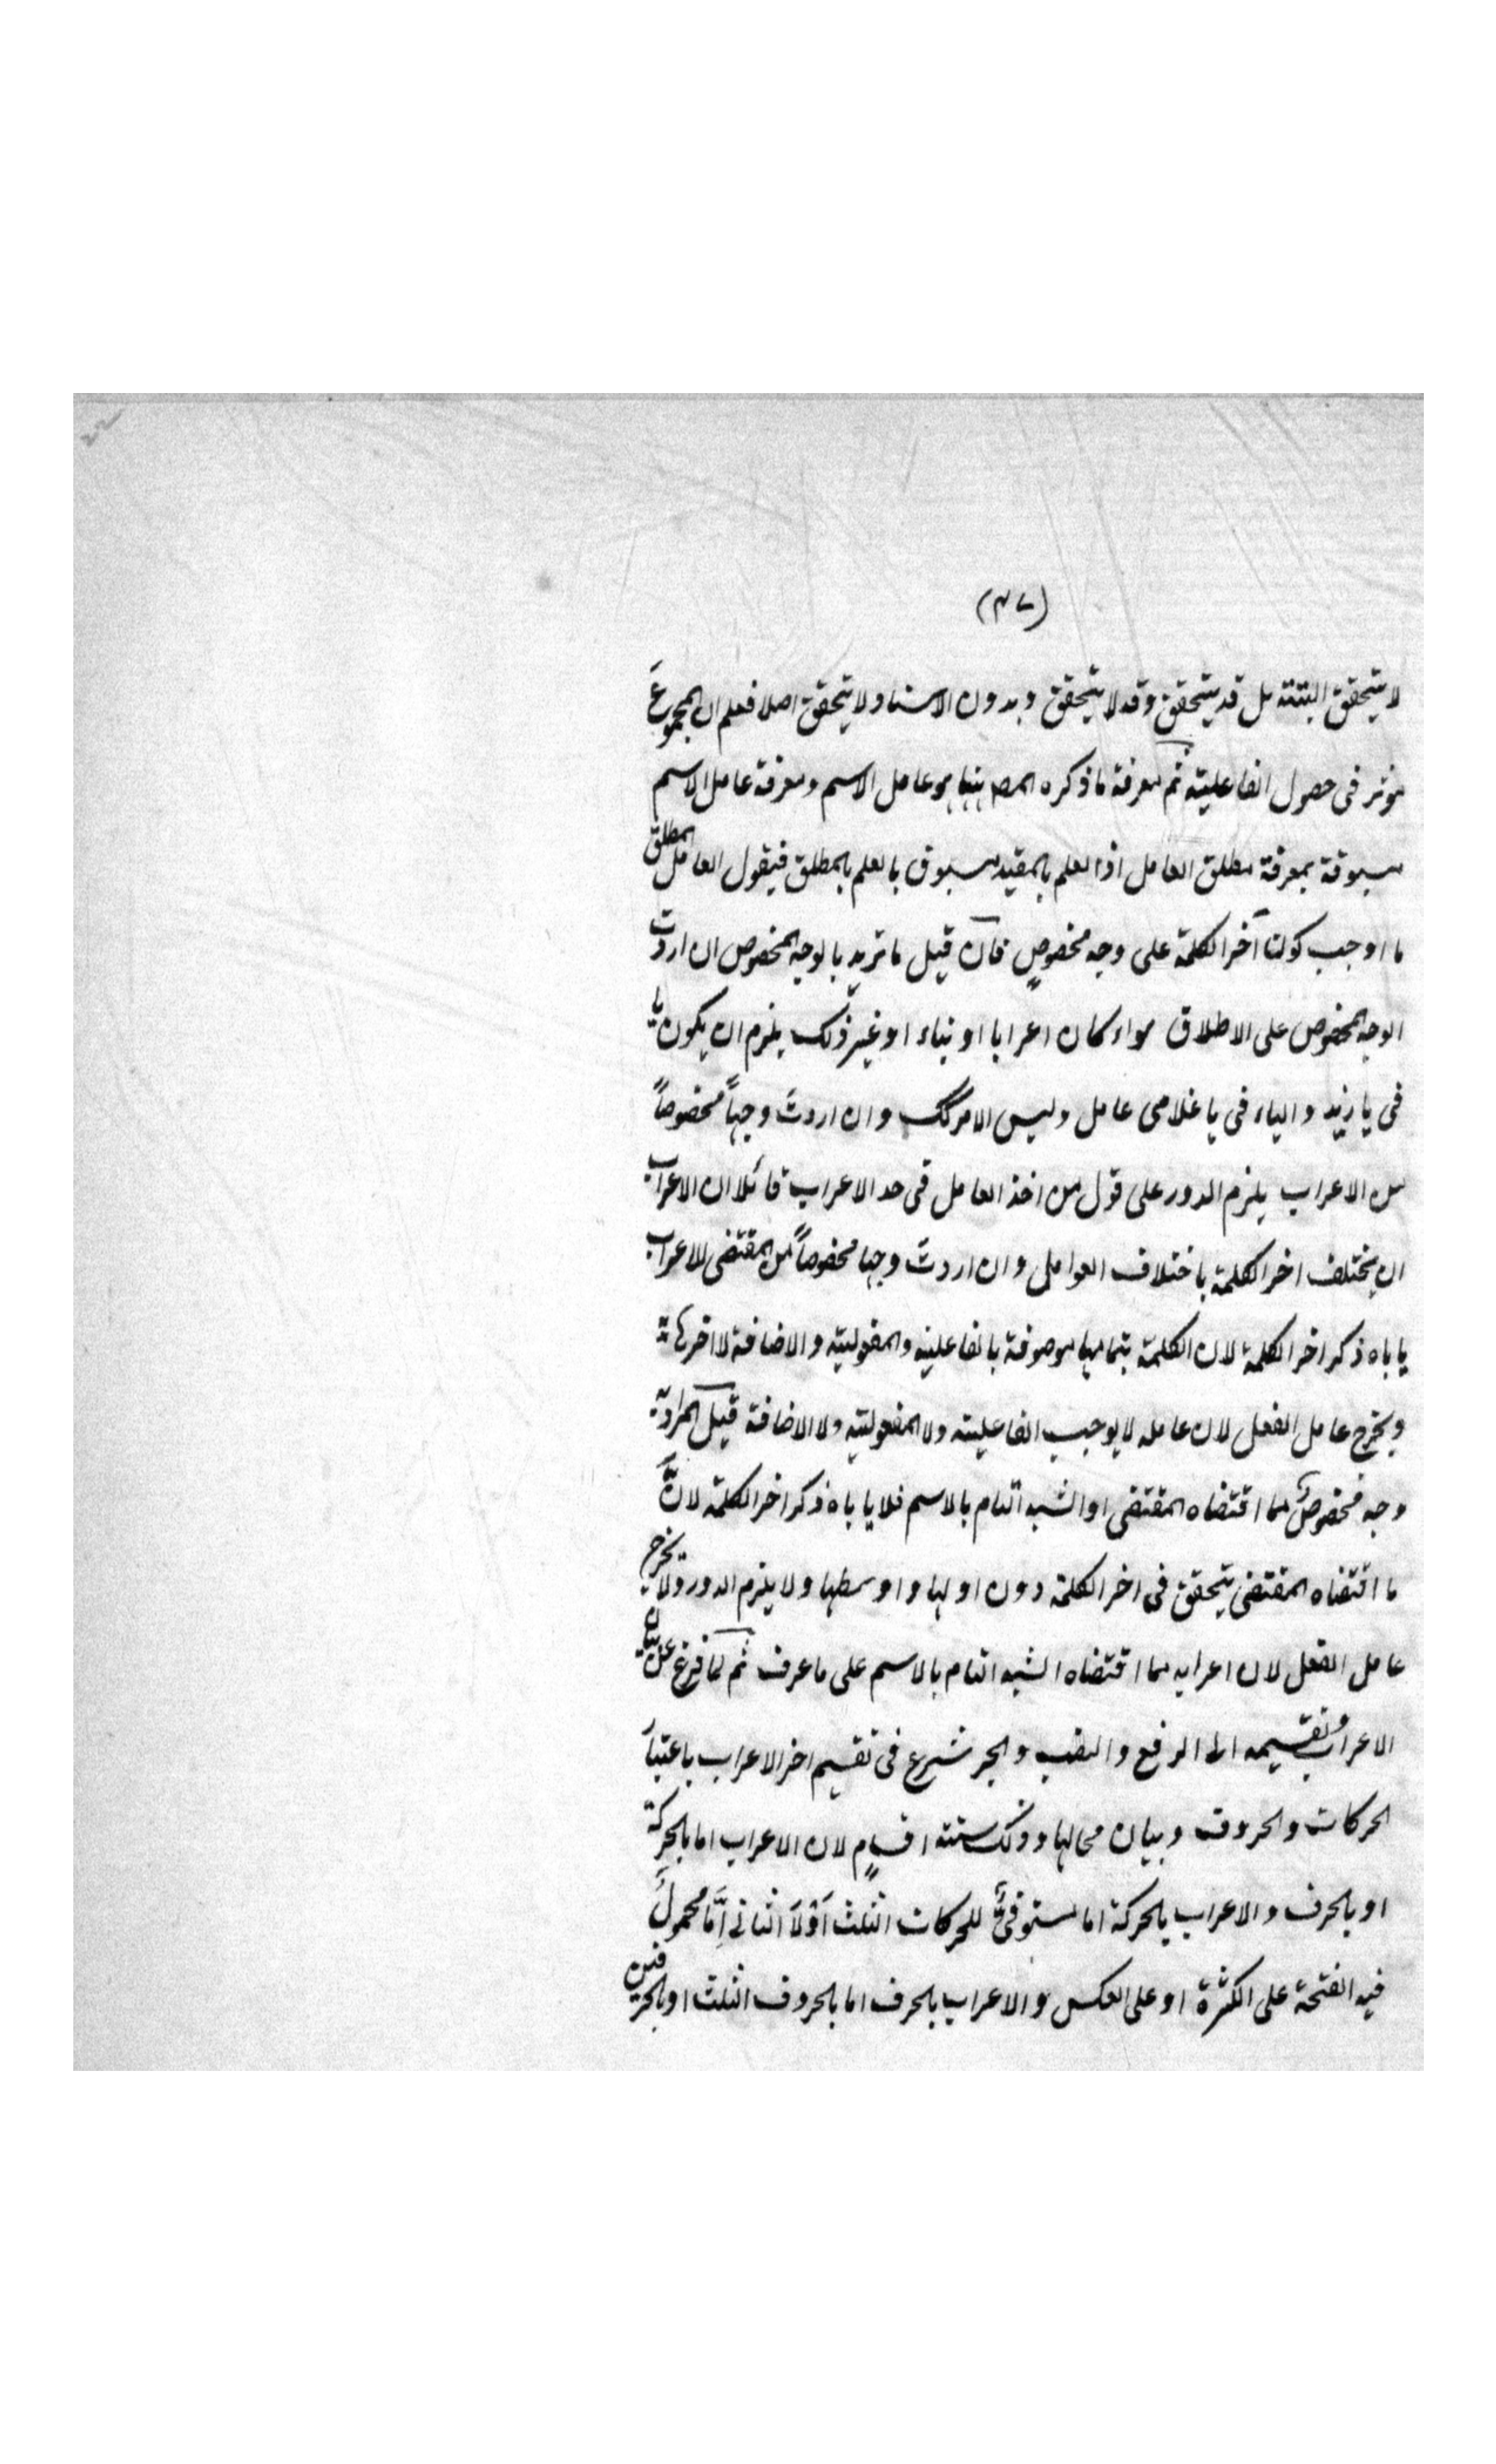 (٤٧)
لا يتحقق البتته بل قد يتحقق وقد لا يتحقق وبدون الاسناد لا يتحقق اصلا فعلم ان المجموعَ
موثر فى حصول الفاعليته ثم معرفة ما ذكره المصـ ههنا هو عامل الاسم ومعرفة عامل الاسم
مسبوقة بمعرفة مطلق العامل اذا العلم بالمقيد مسبوق بالعلم بالمطلق فيقول العامل المطلق
ما اوجب كون آخر الكلمة على وجه مخصوصٍ فان قيل ما تريد بالوجه المخصوص ان اردت
الوجه المخصوص على الاطلاق سواء كان اعرابا او بناء او غير ذلك يلزم ان يكون يا
فى يا زيد والياء فى يا غلامى عامل وليس الامر كك وان اردتَ وجهاً مخصوصاً
من الاعراب يلزم الدور على قول من اخذ العامل فى حد الاعراب قائلا ان الاعراب
ان يختلف اخر الكلمة باختلاف العوامل وان اردتَ وجها مخصوصاً من المقتضى للاعراب
يا باه ذكر اخر الكلمة لان الكلمة بتمامها موصوفة بالفاعليه والمفوليته والاضافة لا اخرها
ويخرج عامل الفعل لان عامله لا يوجب الفاعليته ولا المفعوليته ولا الاضافة قيل المراد به
وجه مخصوصٌ مما اقتضاه المقتضى او الشبه التام بالاسم فلا يا باه ذكر اخر الكلمة لانَّ
ما اقتضاه المقتضى يتحقق فى اخر الكلمة دون اولها واوسطها ولا يلزم الدور ولا يخرج
عامل الفعل لان اعرابه مما اقتضاه الشبه التام بالاسم على ما عرف ثم لما فرغ عن بيان
الاعراب وتقسيمه الى الرفع والنصب والجر شرع فى تقسيم اخر الاعراب باعتبار
الحركات والحروف وبيان محالها وذلك ستته اقسامٍ لان الاعراب اما بالحركة
او بالحرف والاعراب بالحركة اما مستوفىً للحركات الثلث اوْلاَ الثانى اِمَّا محمولٌ
فيه الفتحة على الكثرة او على العكس والاعراب بالحرف اما بالحروف الثلث او بالحرفين